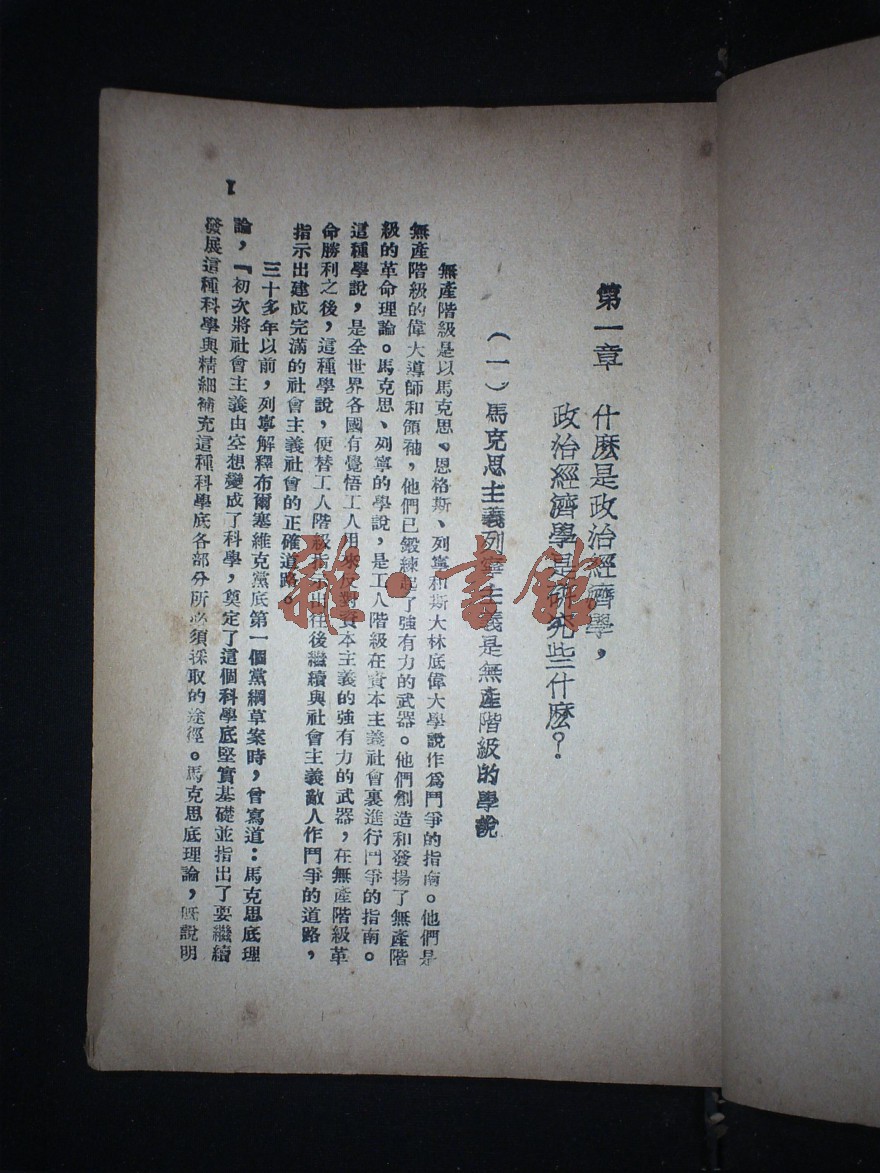 第一章 什麽是政治經濟學,
政治經濟學是研究些什麽?
(一)馬克思主義列寧主義是無產階級的學說
無產階級是以馬克思、恩格斯、列寧和斯大林底偉大學說作爲鬥爭的指南。他們是
無產階級的偉大導師和領袖,他們已鍛練起了強有力的武器。他們創造和發揚了無產階
級的革命理論。馬克思、列寧的學說,是工人階級在資本主義社會裏進行鬥爭的指南。
這種學說,是全世界各國有覺悟工人用來反對資本主義的強有力的武器,在無產階級革
命勝利之後,這種學說,便替工人階級指示出往後繼續與社會主義敵人作鬥爭的道路,
指示出建成完滿的社會主義社會的正確道路。
三十多年以前,列寧解釋布爾塞維克黨底第一個黨綱草案時,曾寫道:馬克思底理
論,『初次將社會主義由空想變成了科學,奠定了這個科學底堅實基礎並指出了要繼續
發展這種科學與精細補充這種科學底各部分所必須採取的途徑。馬克思底理論,旣說明
1
雜·書館